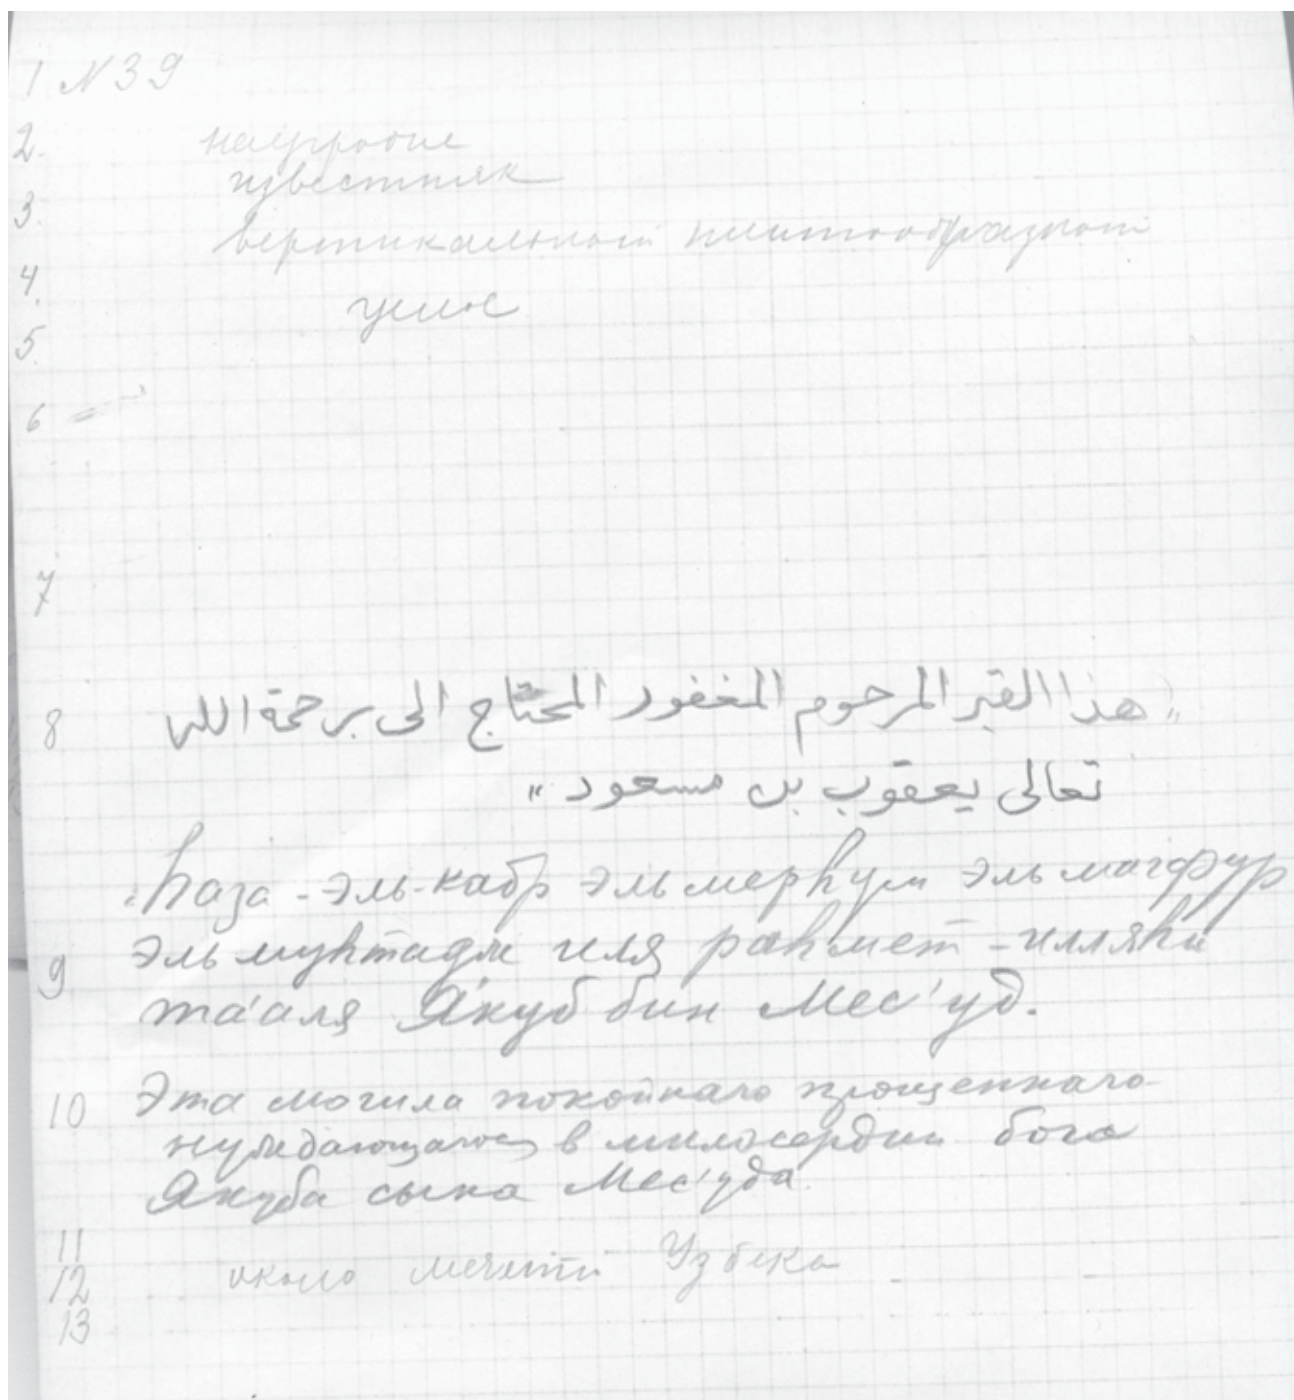 1 N 39
2. надгробие
известняк
3. вертикальной плитообразной
4. целое
5.
6
7
8 „هذا القبر المرحوم المغفور المحتاج الى برحمة الله
تعالى يعقوب بن مسعود"
„Һаза-эль-кабр эль мерһум эль магфур
9 эль муһтадж иля раһмет-илляһи
та'аля Я'куб бин Мес'уд.
10 Эта могила покойнаго прощеннаго
нуждающагося в милосердии бога
Якуба сына Мес'уда.
11
12 около мечети Узбека
13